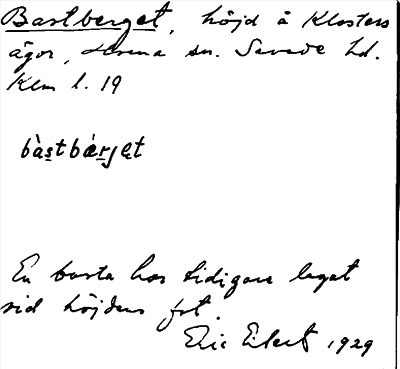 Bastberget, höjd å Klosters
ägor, Stenna sn. Sevede hd.
Klm l. 19
bàstbǽrjet
En basta har tidigare legat
vid höjdens fot.
Eric Elert 1929